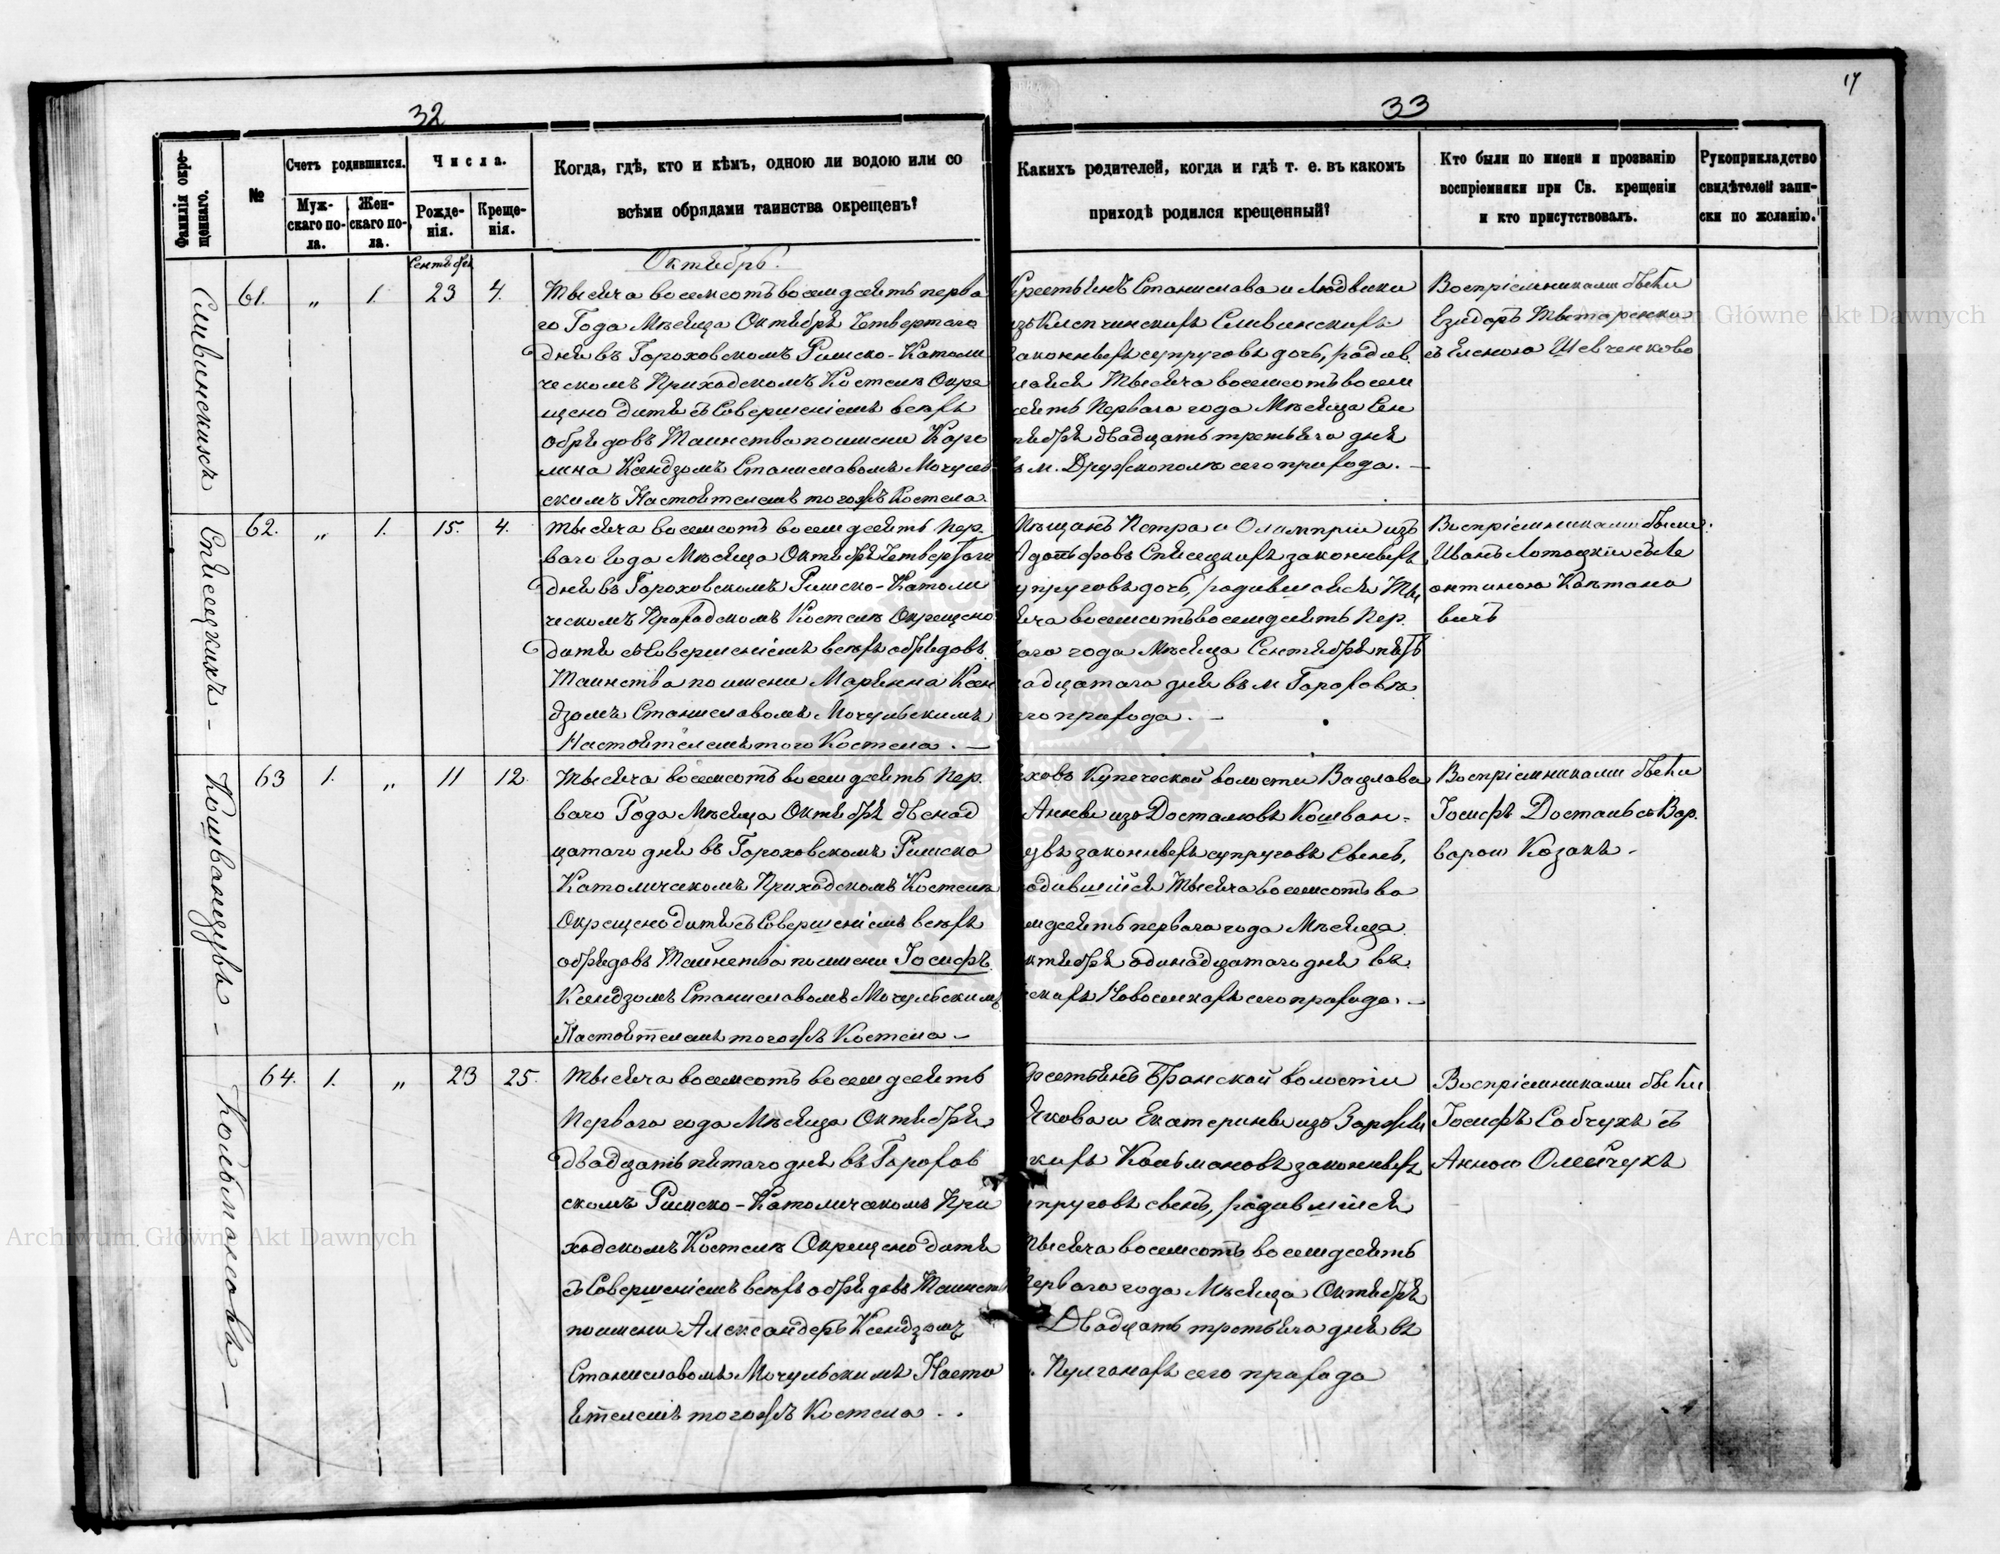 32
Фамилія окрещеннаго.
№
Счетъ родившихся.
Мужскаго пола.
Женскаго пола.
Числа.
Рожденія.
Крещенія.
Когда, гдѣ, кто и кѣмъ, одною ли водою или со
всѣми обрядами таинства окрещенъ?
Октябрь.
Сентябрь
Сливинскихъ
61. „ 1. 23 4.
Тысяча восемсотъ восемдесятъ перва
го Года Мѣсяца Октября Четвертаго
дня въ Гороховскомъ Римско-Католи
ческомъ Приходскомъ Костелѣ Окре
щено дитя съ Совершеніемъ всѣхъ
обрядовъ Таинства по имени Каро
лина Ксендзомъ Станиславомъ Мочуль
скимъ Настоятелемъ тогожъ Костела.
62. „ 1. 15. 4.
Тысяча восемсотъ восемдесятъ Пер
ваго Года Мѣсяца Октября Четвертаго
дня въ Гороховскомъ Римско-Католи
ческомъ Приходскомъ Костелѣ Окрещено
дитя съ Совершеніемъ всѣхъ обрядовъ
Таинства по имени Маріанна Ксен
дзомъ Станиславомъ Мочульскимъ
Настоятелемъ того Костела. —
Кошванцувъ —
63 1. „ 11 12.
Тысяча восемсотъ восемдесятъ Пер.
ваго Года Мѣсяца Октября двенад
цатаго дня въ Гороховскомъ Римско
Католическомъ Приходскомъ Костелѣ
Окрещено дитя съ Совершеніемъ всѣхъ
обрядовъ Таинства по имени Іосифъ
Ксендзомъ Станиславомъ Мочульскимъ
Настоятелемъ тогожъ Костела —
Кольмановъ —
64. 1. „ 23 25.
Тысяча восемсотъ восемдесятъ
Перваго года Мѣсяца Октября
двадцать пятаго дня въ Горохов
скомъ Римско-Католическомъ При
ходскомъ Костелѣ Окрещено дитя
съ Совершеніемъ всѣхъ обрядовъ Таинств
по имени Александеръ Ксендзомъ
Станиславомъ Мочульскимъ Насто
ятелемъ тогожъ Костела . .
33
17
Какихъ родителей, когда и гдѣ т. е. въ какомъ
приходѣ родился крещенный?
Кто были по имени и прозванію
воспріемники при Св. крещеніи
и кто присутствовалъ.
Рукоприкладство
свидѣтелей запи-
ски по желанію.
Крестьянъ Станислава и Людвики
Сливинскихъ
законныхъ супруговъ дочь, родив
шаяся Тысяча восемсотъ восем
десятъ Перваго года Мѣсяца Сен
тября двадцать третьяго дня
въ м. Дружкополѣ сего прихода. —
Воспріемниками были
съ Еленою Шевченково
Мѣщанъ Петра и Олимпіи изъ
законныхъ
супруговъ дочь, родившаяся Ты
сяча восемсотъ восемдесятъ Пер.
ваго года Мѣсяца Сентября пят
надцатаго дня въ м Гороховѣ
сего прихода. —
Воспріемниками были
Иванъ Лотоцкій съ Ле
онтиною Каетано
вичъ
Чеховъ Купеческой волости Вацлава
Анны изъ Досталювъ Кошван-
цувъ законныхъ супруговъ Сынъ,
родившійся Тысяча восемсотъ во
семдесятъ перваго года Мѣсяца
Октября одинадцатаго дня въ
Новоселкахъ сего прихода. —
Воспріемниками были
Іосифъ Досталь съ Вар.
варою Козакъ —
Крестьянъ Бранской волости
Якова и Екатерины изъ
Кольмановъ законныхъ
супруговъ сынъ, родившійся
Тысяча восемсотъ восемдесятъ
Перваго года Мѣсяца Октября
Двадцать третьяго дня въ
Пулганахъ сего прихода
Воспріемниками были
Іосифъ Собчукъ съ
Анною Олейчукъ
Archiwum Główne Akt Dawnych
Archiwum Główne Akt Dawnych